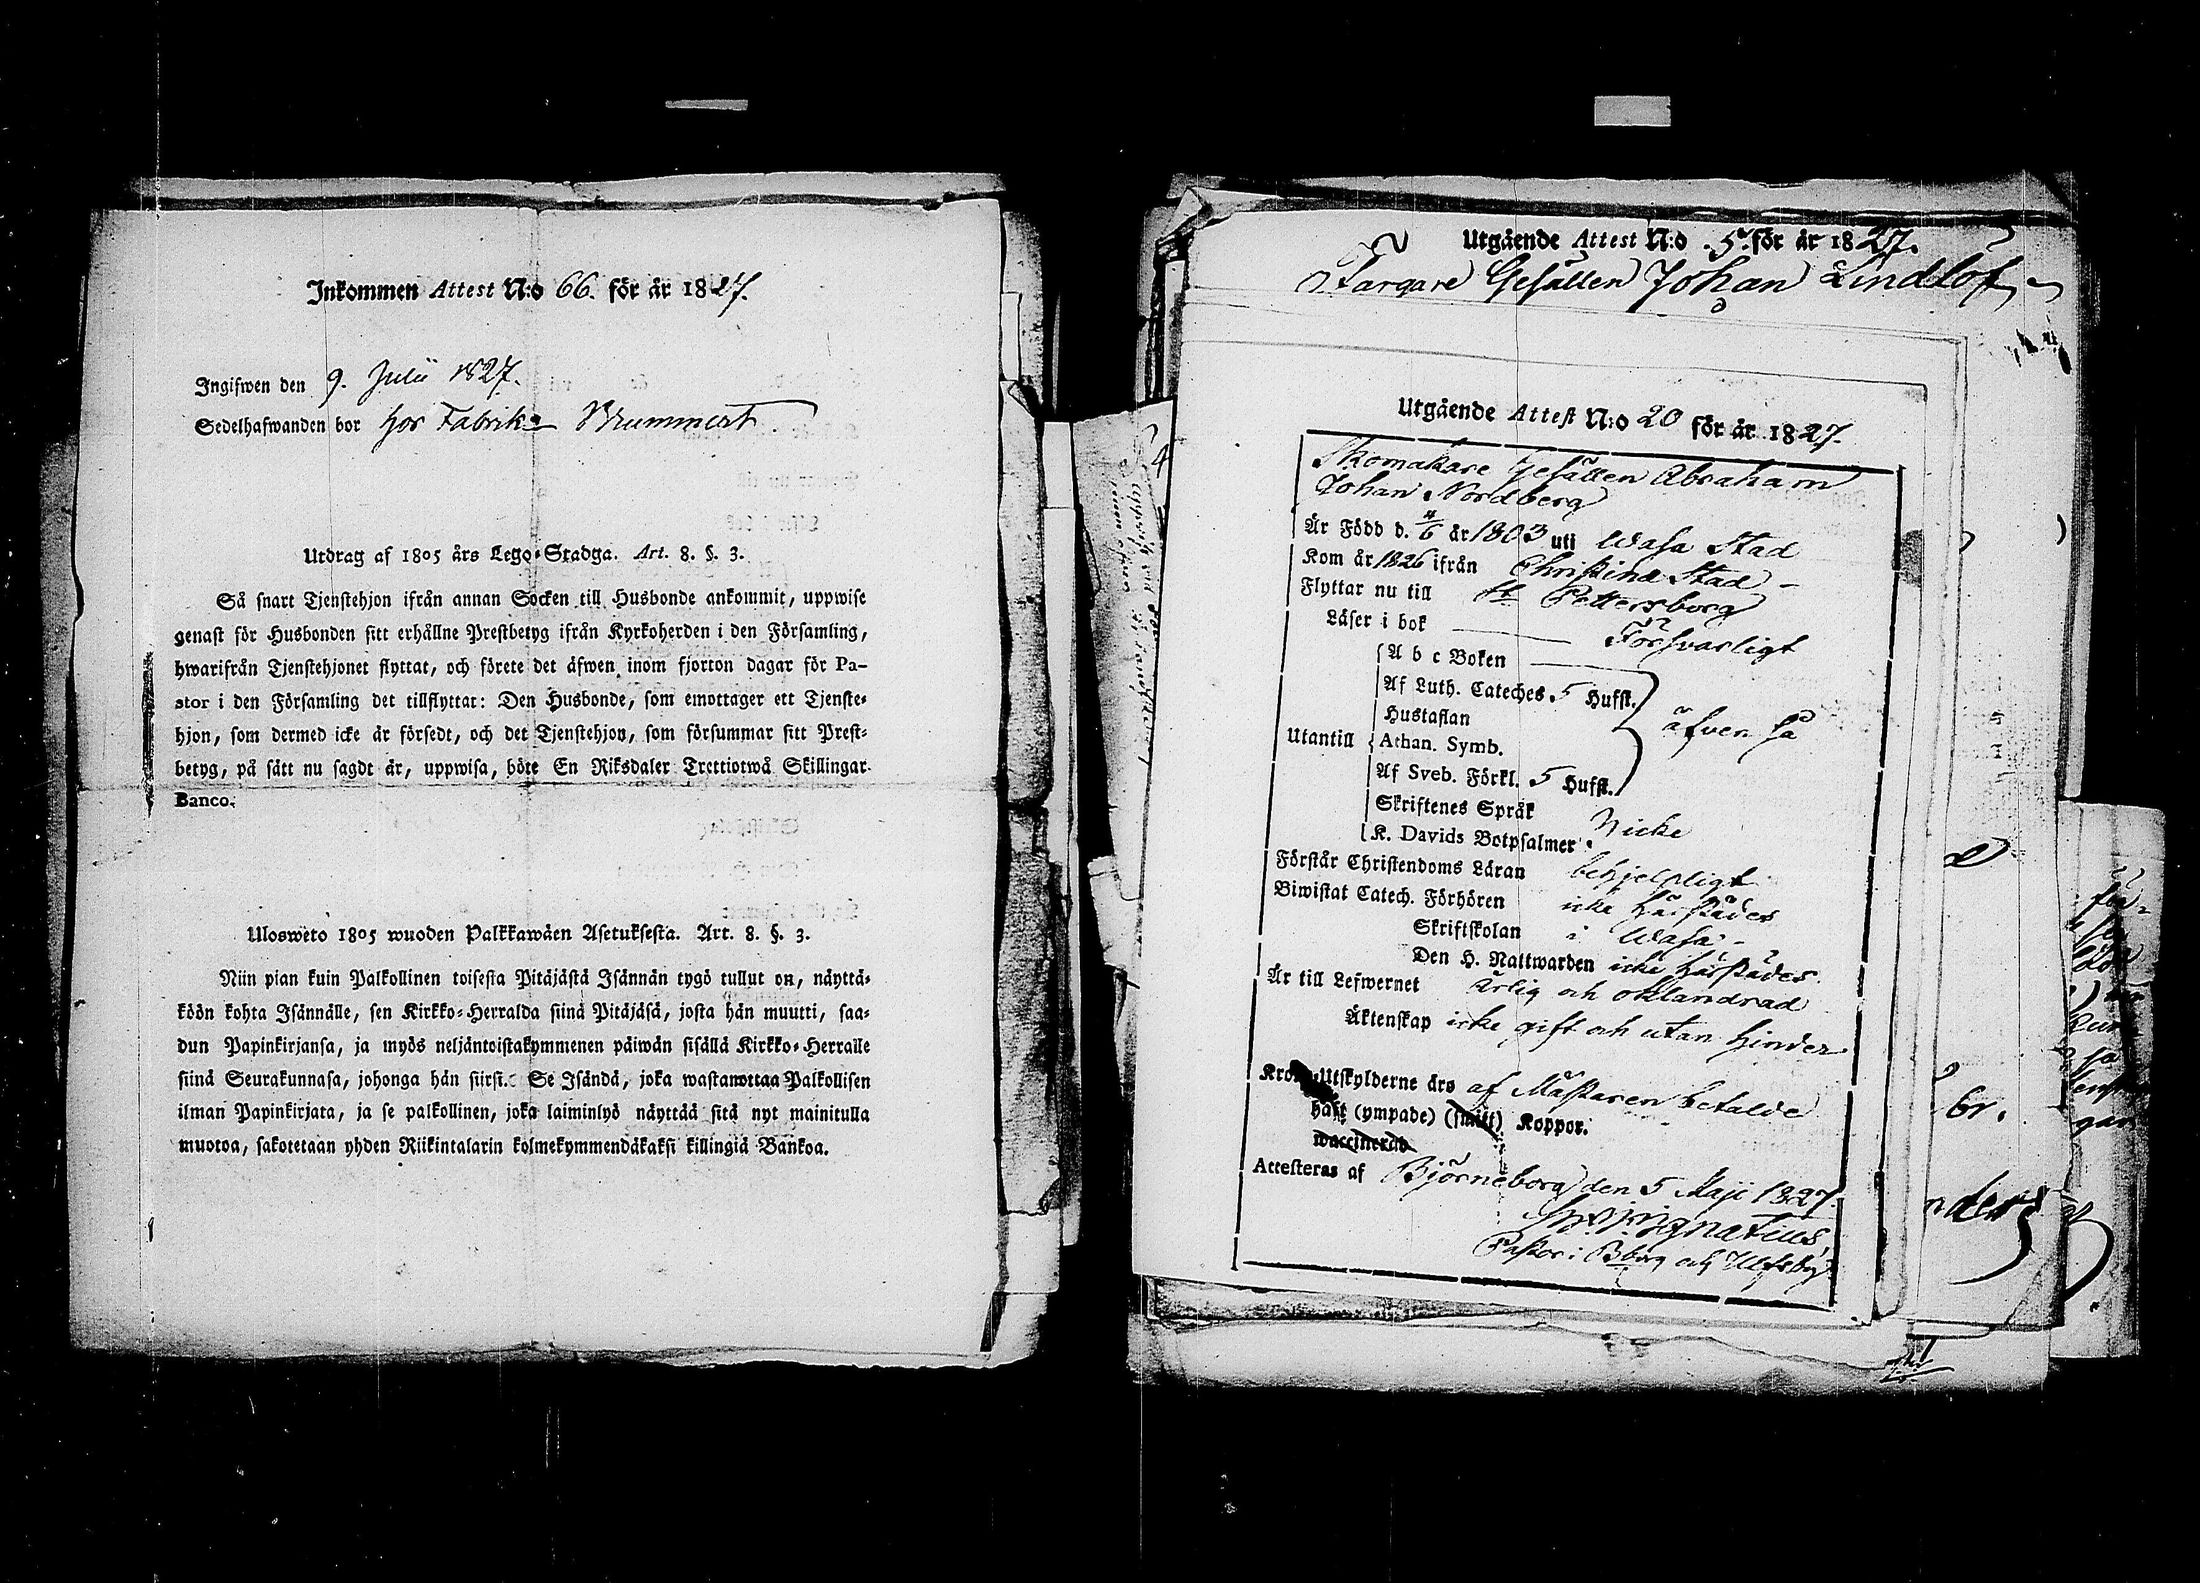 Inkommen Attest N:o 66. för år 1827.
Ingifwen den 9. Julii 1827.
Sedelhafwanden bor hos Fabrik: Brummert
Utdrag af 1805 års Lego-Stadga. Art. 8. §. 3.
Så snart Tjenstehjon ifrån annan Socken till Husbonde ankommit, uppwise
genast för Husbonden sitt erhållne Prestbetyg ifrån Kyrkoherden i den Församling,
hwarifrån Tjenstehjonet flyttat, och förete det äfwen inom fjorton dagar för Pa-
stor i den Församling det tillflyttat: Den Husbonde, som emottager ett Tjenste-
hjon, som dermed icke är försedt, och det Tjenstehjon, som försummar sitt Prest-
betyg, på sätt nu sagdt är, uppwisa, böte En Riksdaler Trettiotwå Skillingar
Banco.
Ulosweto 1805 wuoden Palkkawäen Asetuksesta. Art. 8. §. 3.
Niin pian kuin Palkollinen toisesta Pitäjästä Isännän tygö tullut on, näyttä-
köön kohta Isännälle, sen Kirkko-Herralda siinä Pitäjäsä, josta hän muutti, saa-
dun Papinkirjansa, ja myös neljäntoistakymmenen päiwän sisällä Kirkko-Herralle
siinä Seurakunnasa, johonga hän siirsi. Se Isändä, joka wastanottaa Palkollisen
ilman Papinkirjata, ja se palkollinen, joka laiminlyö näyttää sitä nyt mainitulla
muotoa, sakotetaan yhden Riikintalarin kolmekymmendäkaksi killingiä Bankoa.
Utgående Attest N:o 5. för år 1827.
Färgare Gesällen Johan Lindlöf
Utgående Attest N:o 20 för år 1827.
Skomakare Gesällen Abraham
Johan Nordberg
Är Född d. 4/6 år 1803 uti Wasa Stad
Kom år 1826 ifrån Christinæ Stad
Flyttar nu till St Pettersborg
Läser i bok Försvarligt
A b c Boken
Af Luth. Cateches 5 Hufst.
Hustaflan
Utantill Athan. Symb. äfven så
Af Sveb. Förkl. 5 Hufst.
Skriftenes Språk
K. Davids Botpsalmer Nicke
Förstår Christendoms Läran behjelpligt
Biwistat Catech. Förhören icke härstädes
Skriftskolan i Wasa
Den H. Nattwarden icke härstädes
Är till Lefwernet ärlig och oklandrad
Äktenskap icke gift och utan hinder
Krono-Utskylderne äro af Mästaren betalde
haft (ympade) (smitt) Koppor.
waccinerad
Attesteras af Björneborg den 5 Maji 1827.
Ignatius
Pastor i Bborg och Ulfsby
br.